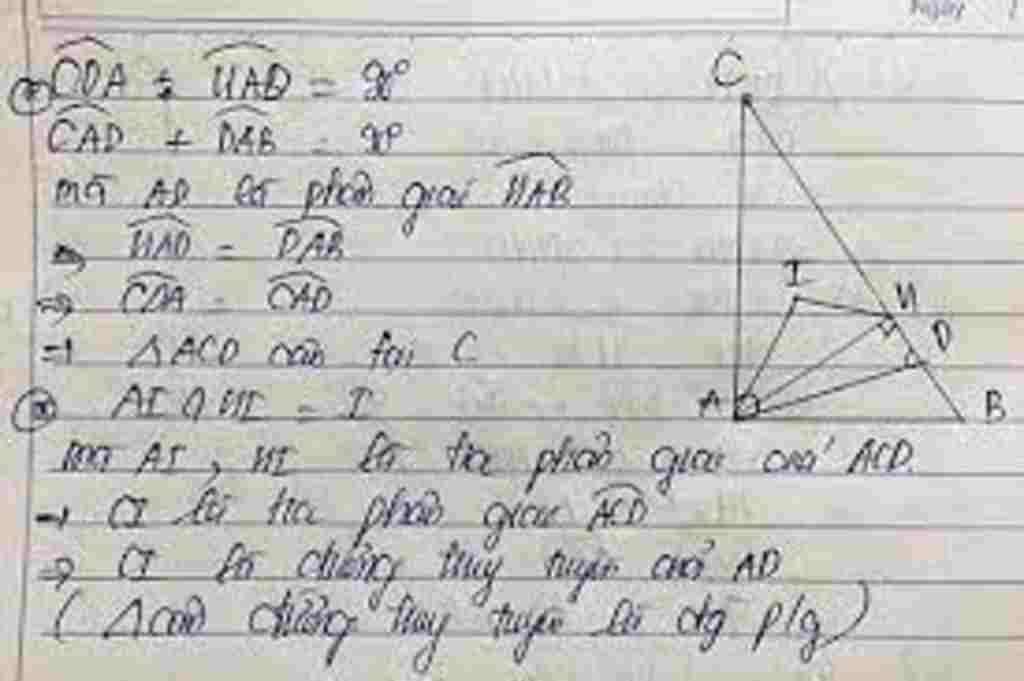 Ngày
⊛ CDA + HAD = 90°
CAD + DAB = 90°
mà AD là phân giác HAB
⇒ HAD = DAB
⇒ CDA = CAD
⇒ ΔACD cân tại C
⊛ AI ∩ HI = I
mà AI, HI là tia phân giác của ACD.
→ CI là tia phân giác ACD
⇒ CI là đường trung tuyến của AD
(Δ cân đường trung tuyến là đg p/g)
C
I
H
D
A
B